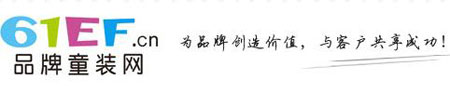 61EF.cn
品牌童装网
为品牌创造价值，与客户共享成功！